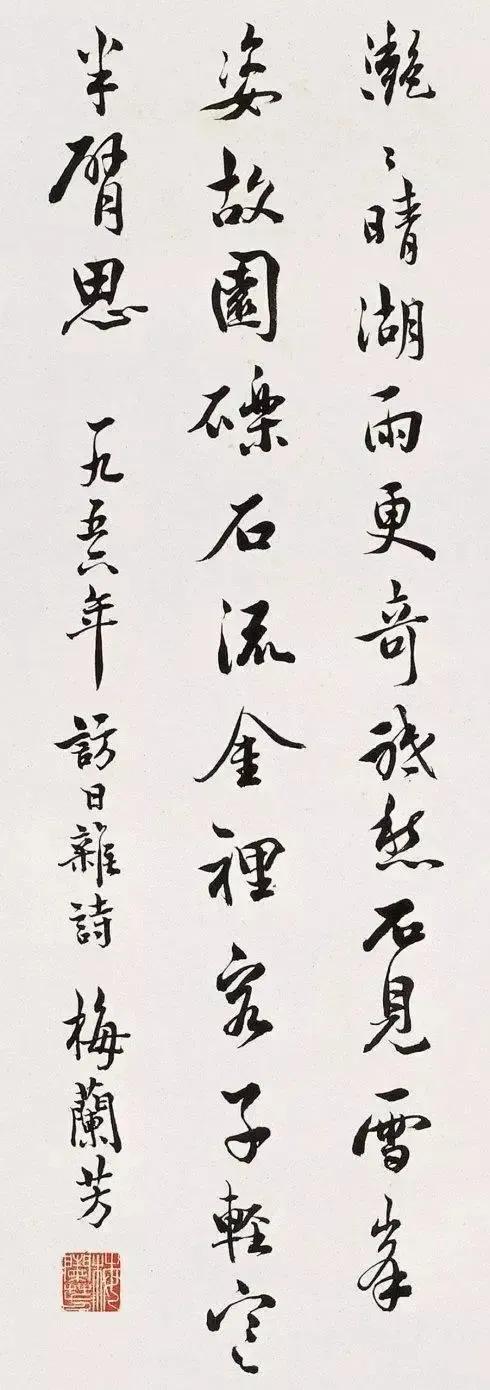 灧〻晴湖雨更奇祗愁不見雪峯
姿故園礫石流金裡客子輕寒
半臂思 一九五六年 訪日雜詩 梅蘭芳